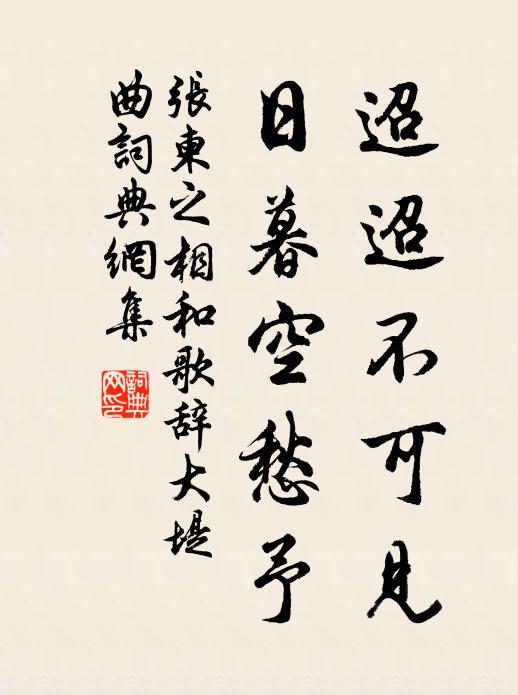 迢迢不可見
日暮空愁予
張東之相和歌辞大堤
曲詞典網集
詞典
网印